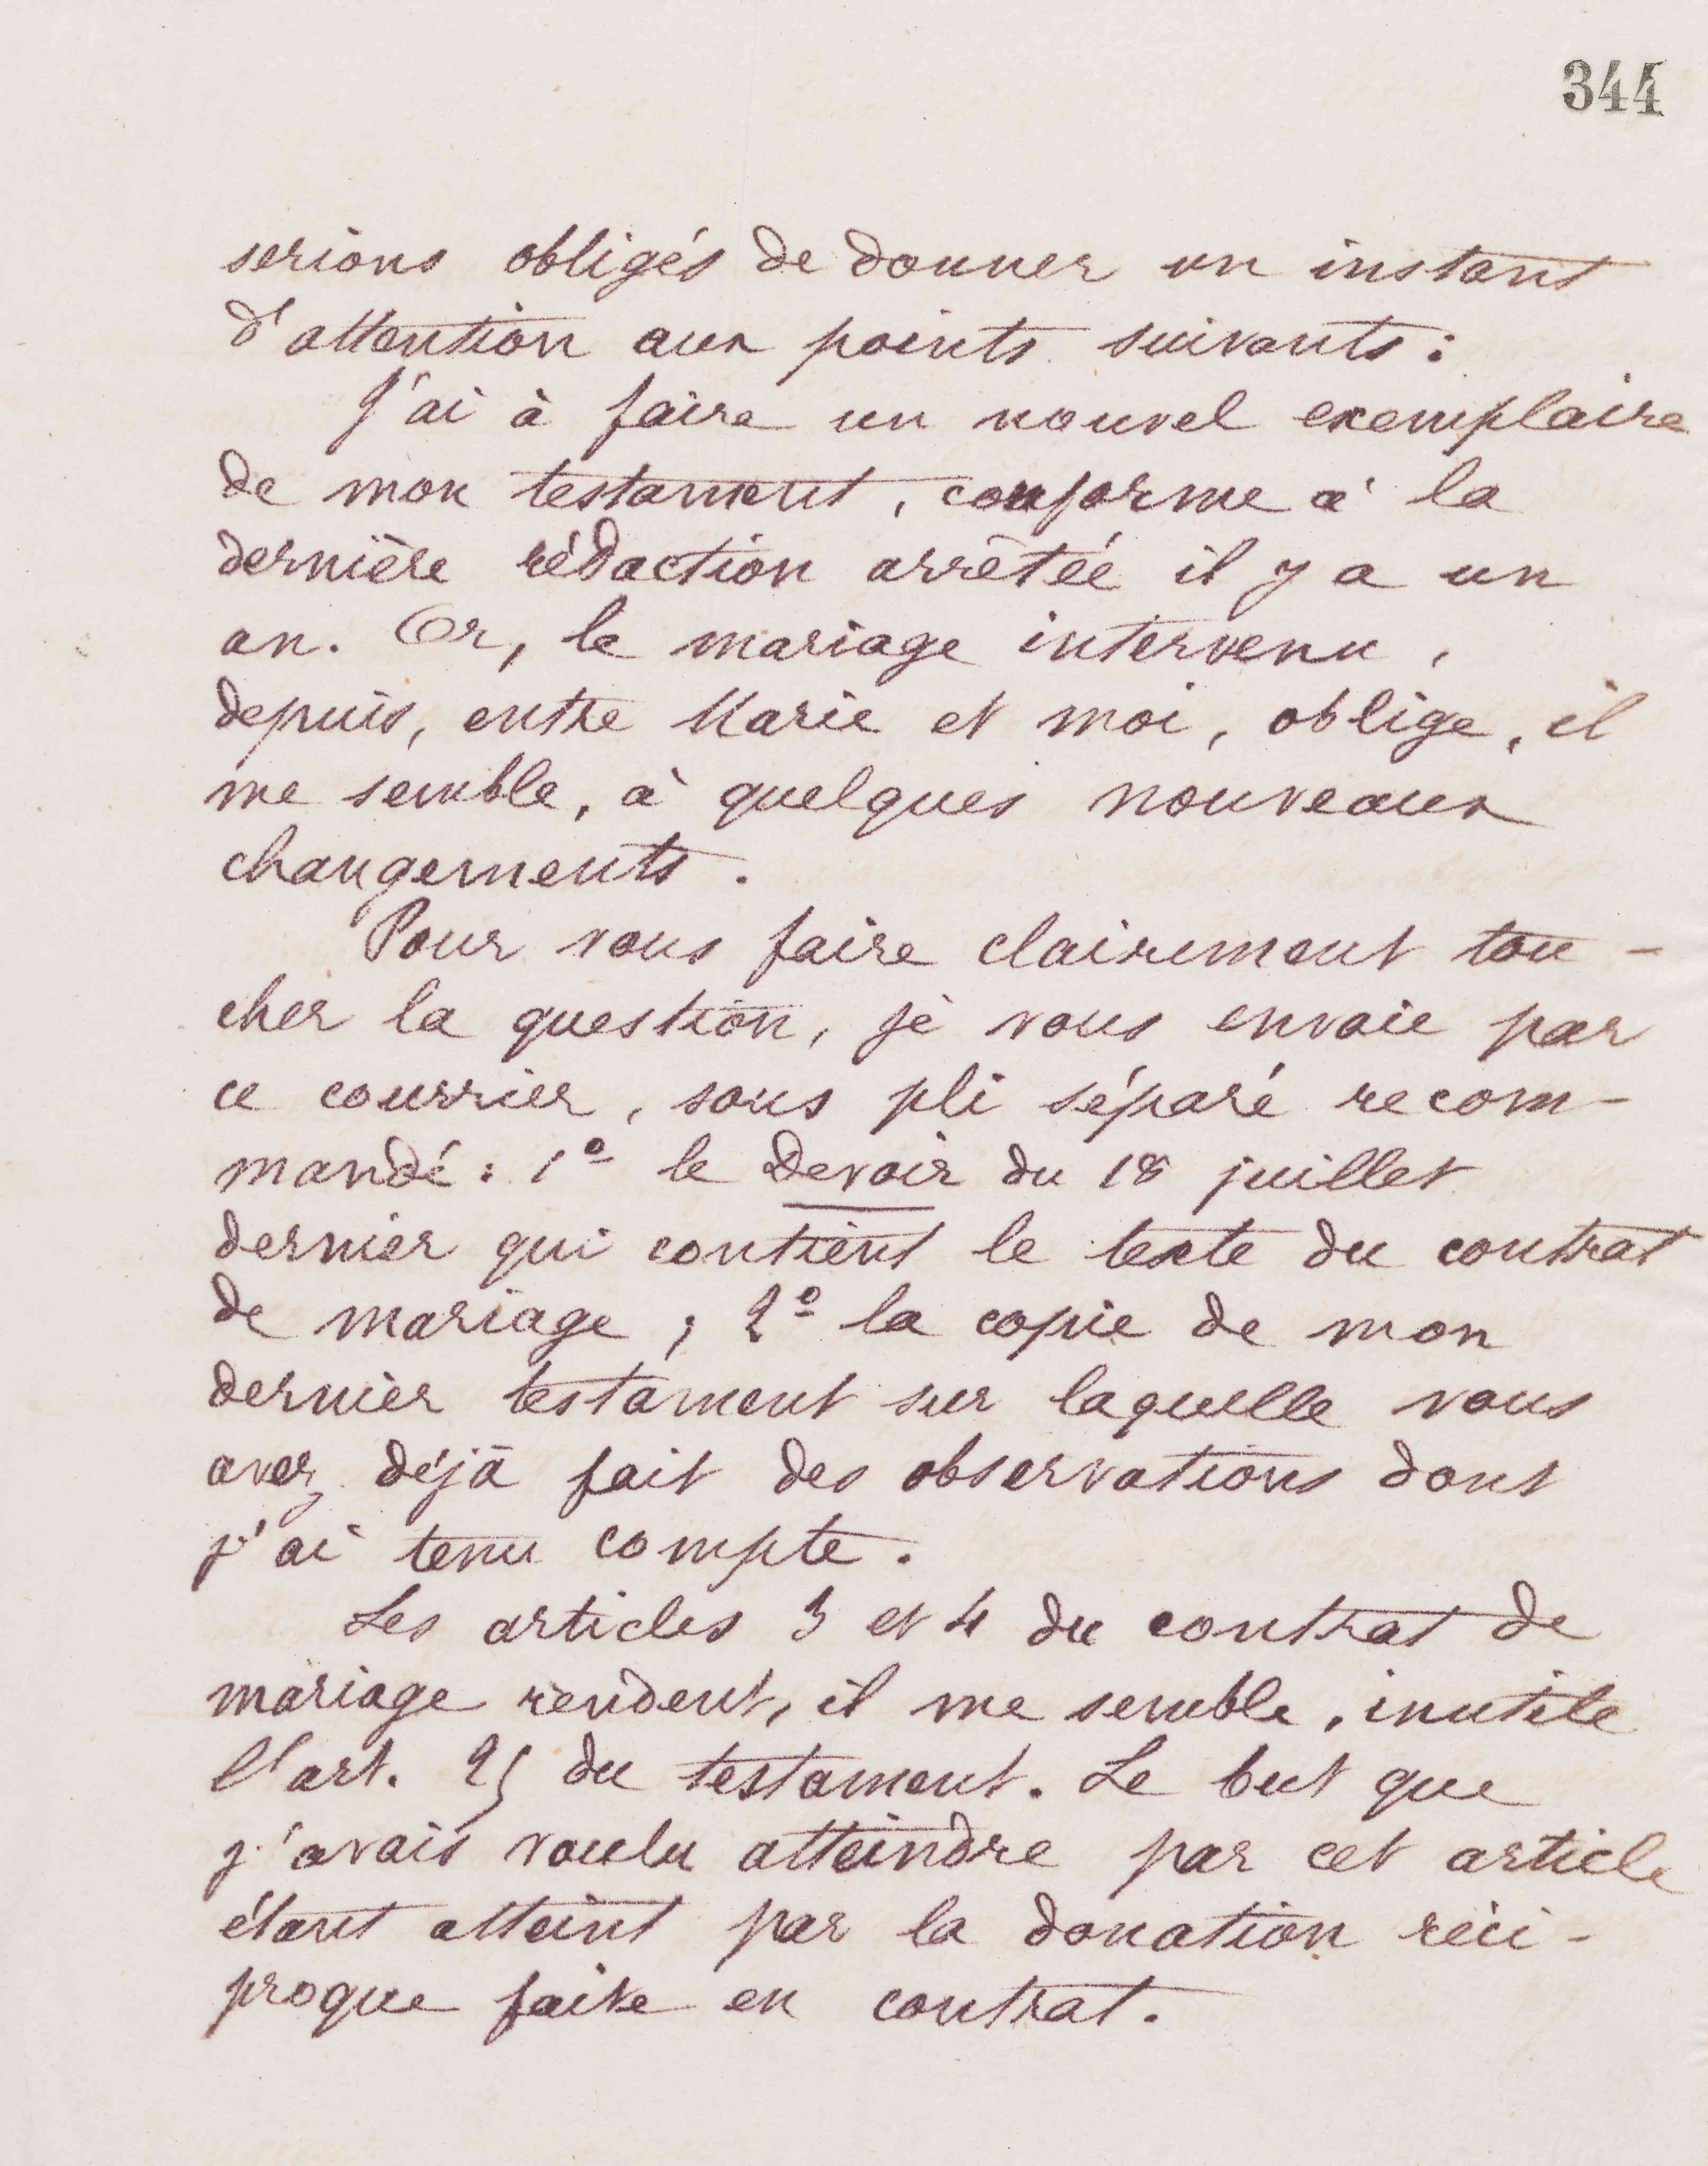 344
serions obligés de donner un instant
d'attention aux points suivants :
J'ai à faire un nouvel exemplaire
de mon testament, conforme à la
dernière rédaction arrêtée il y a un
an. Or, le mariage intervenu,
depuis, entre Marie et moi, oblige, il
me semble, à quelques nouveaux
changements.
Pour vous faire clairement tou-
cher la question, je vous envoie par
ce courrier, sous pli séparé recom-
mandé : 1º le Devoir du 18 juillet
dernier qui contient le texte du contrat
de mariage ; 2º la copie de mon
dernier testament sur laquelle vous
avez déjà fait des observations dont
j'ai tenu compte.
Les articles 3 et 4 du contrat de
mariage rendent, il me semble, inutile
l'art. 25 du testament. Le but que
j'avais voulu atteindre par cet article
étant atteint par la donation réci-
proque faite en contrat.